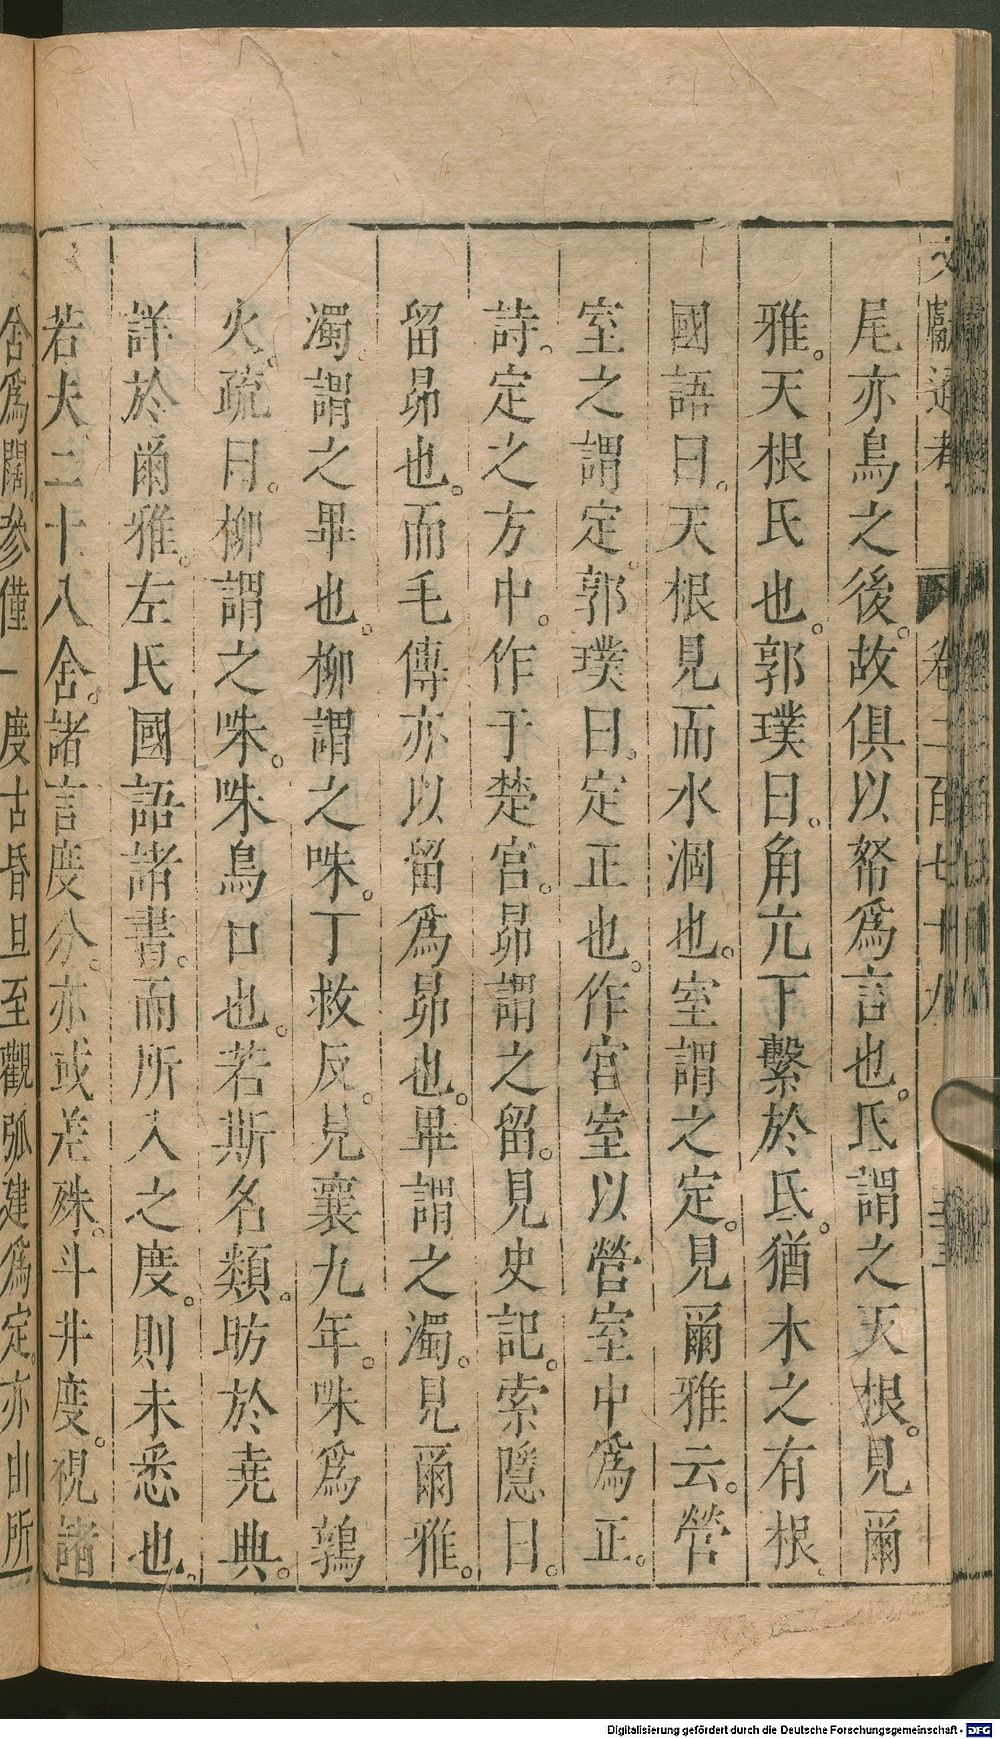 文獻通考 卷二百七十九
尾亦鳥之後。故俱以帑爲言也。氐謂之天根。見爾
雅。天根氐也。郭璞曰。角亢下繫於氐。猶木之有根。
國語曰。天根見而水涸也。室謂之定。見爾雅云。營
室之謂定。郭璞曰。定正也。作宮室以營室中爲正。
詩。定之方中。作于楚宮。昴謂之留。見史記。索隱曰。
留昴也。而毛傳亦以留爲昴也。畢謂之濁。見爾雅。
濁。謂之畢也。柳謂之咮。丁救反。見襄九年。咮爲鶉
火。疏曰。柳謂之咮。咮鳥口也。若斯名類。昉於堯典。
詳於爾雅。左氏國語諸書。而所入之度。則未悉也。
若夫二十八舍。諸言度分。亦或差殊。斗井度。視諸
舍爲闊。參僅一度古昏旦至觀弧建爲定。亦由所
Digitalisierung gefördert durch die Deutsche Forschungsgemeinschaft - DFG